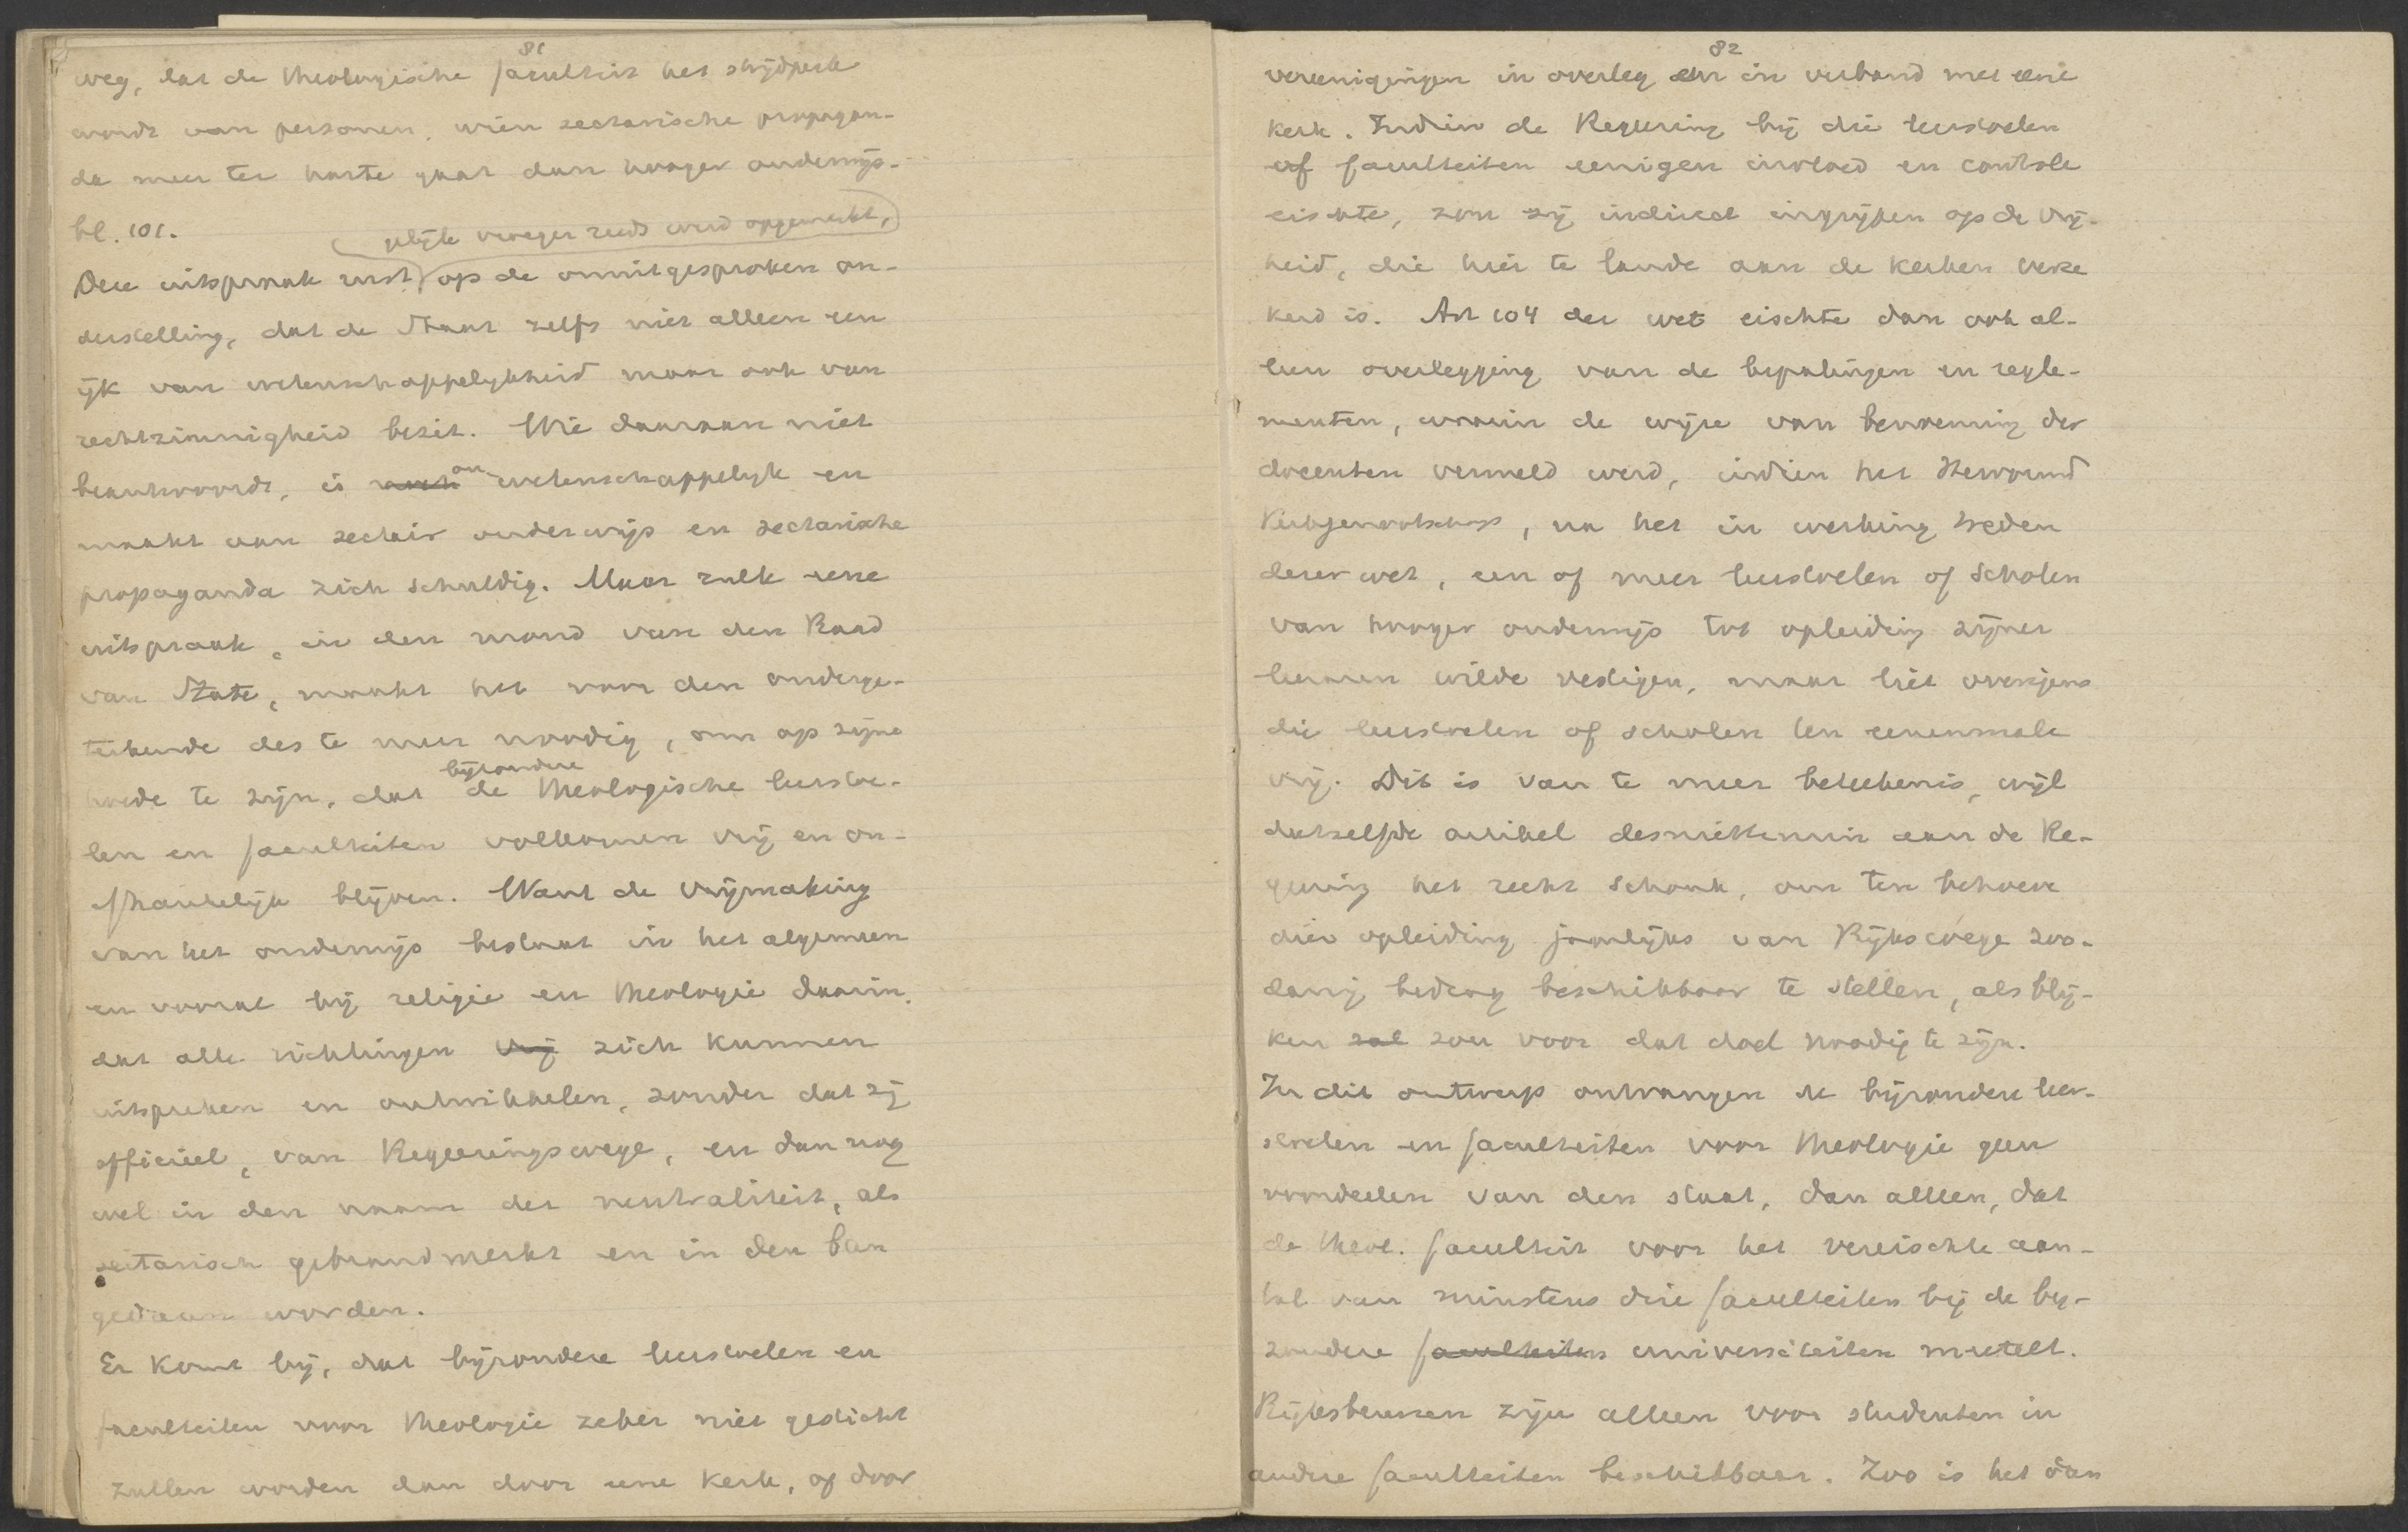 81
weg, dat de theologische faculteit het strijdperk
wordt van personen, wien sectarische propagan-
da meer ter harte gaat dan hooger onderwijs.
bl. 101.
gelijk vroeger reeds werd opgemerkt,
Deze uitspraak rust op de onuitgesproken on-
derstelling, dat de Staat zelfs niet alleen een
ijk van wetenschappelijkheid maar ook van
rechtzinnigheid bezit. Wie daaraan niet
beantwoordt, is onwetenschappelijk en
maakt aan sectair onderwijs en sectarische
propaganda zich schuldig. Maar zulk eene
uitspraak, in den mond van den Raad
van State, maakt het voor den onderge-
teekende des te meer noodig, om op zijne
hoede te zijn, dat de bijzondere theologische leerstoe-
len en faculteiten volkomen vrij en on-
afhankelijk blijven. Want de vrijmaking
van het onderwijs bestaat in het algemeen
en vooral bij religie en theologie daarin,
dat alle richtingen vrij zich kunnen
uitspreken en ontwikkelen, zonder dat zij
officieel, van Regeeringswege, en dan nog
wel in den naam der neutraliteit, als
sectarisch gebrandmerkt en in den ban
gedaan worden.
Er komt bij, dat bijzondere leerstoelen en
faculteiten voor theologie zeker niet gesticht
zullen worden dan door eene kerk, of door
82
vereenigingen in overleg en in verband met eene
kerk. Indien de Regeering bij die leerstoelen
of faculteiten eenigen invloed en controle
eischte, zou zij indirect ingrijpen op de vrij-
heid, die hier te lande aan de kerken verze
kerd is. Art 104 der wet eischte dan ook al-
leen overlegging van de bepalingen en regle-
menten, waarin de wijze van benoeming der
docenten vermeld werd, indien het Hervormd
Kerkgenootschap, na het in werking treden
dezer wet, een of meer leerstoelen of scholen
van hooger onderwijs tot opleiding zijner
leeraren wilde vestigen, maar liet overigens
die leerstoelen of scholen ten eenenmale
vrij. Dit is van te meer beteekenis, wijl
datzelfde artikel desniettemin aan de Re-
geering het recht schonk, om ten behoeve
dier opleiding jaarlijks van Rijkswege zoo-
danig bedrag beschikbaar te stellen, als blij-
ken zal zou voor dat doel noodig te zijn.
In dit ontwerp ontvangen de bijzondere leer-
stoelen en faculteiten voor theologie geen
voordeelen van den staat, dan alleen, dat
de theol. faculteit voor het vereischte aan-
tal van minstens drie faculteiten bij de bij-
zondere faculteiten universiteiten meetelt.
Rijksbeurzen zijn alleen voor studenten in
andere faculteiten beschikbaar. Zoo is het dan